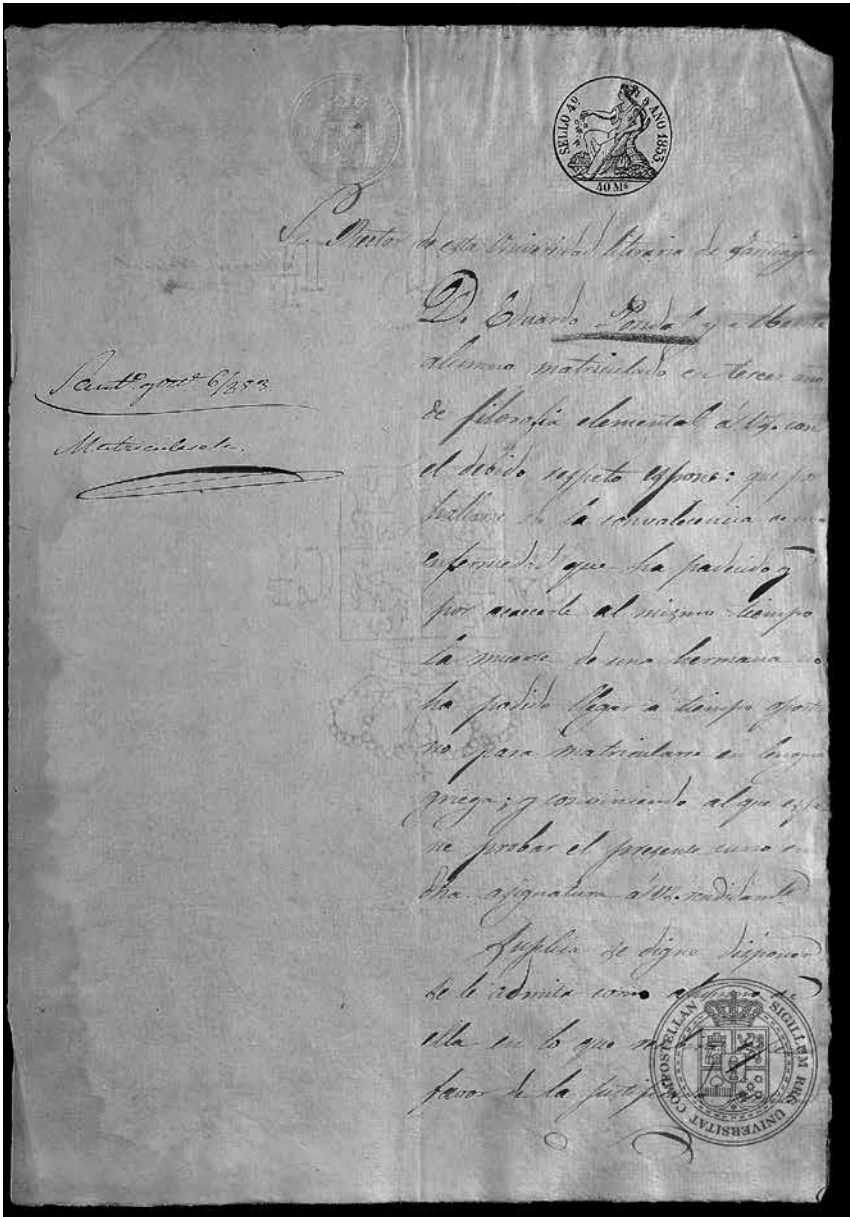 SELLO 4º AÑO 1853
40 Ms
Sr. Rector de esta Universidad literaria de Santiago
D. Eduardo Pondal y
alumno matriculado en tercer año
de filosofía elemental á V.S. con
el debido respeto espone: que por
hallarse en la convalecencia de una
enfermedad que ha padecido y
por acaecerle al mismo tiempo
la muerte de una hermana no
ha podido llegar á tiempo oportu
no para matricularse en lengua
griega; y conviniendo al que espo
ne probar el presente curso en
dha. asignatura á V.S. rendidamte.
Suplica se digne disponer
se le admita como alumno de
ella en lo que
favor de la
Matriculesele.
SIGILLUM REG UNIVERSITAT COMPOSTELLAN